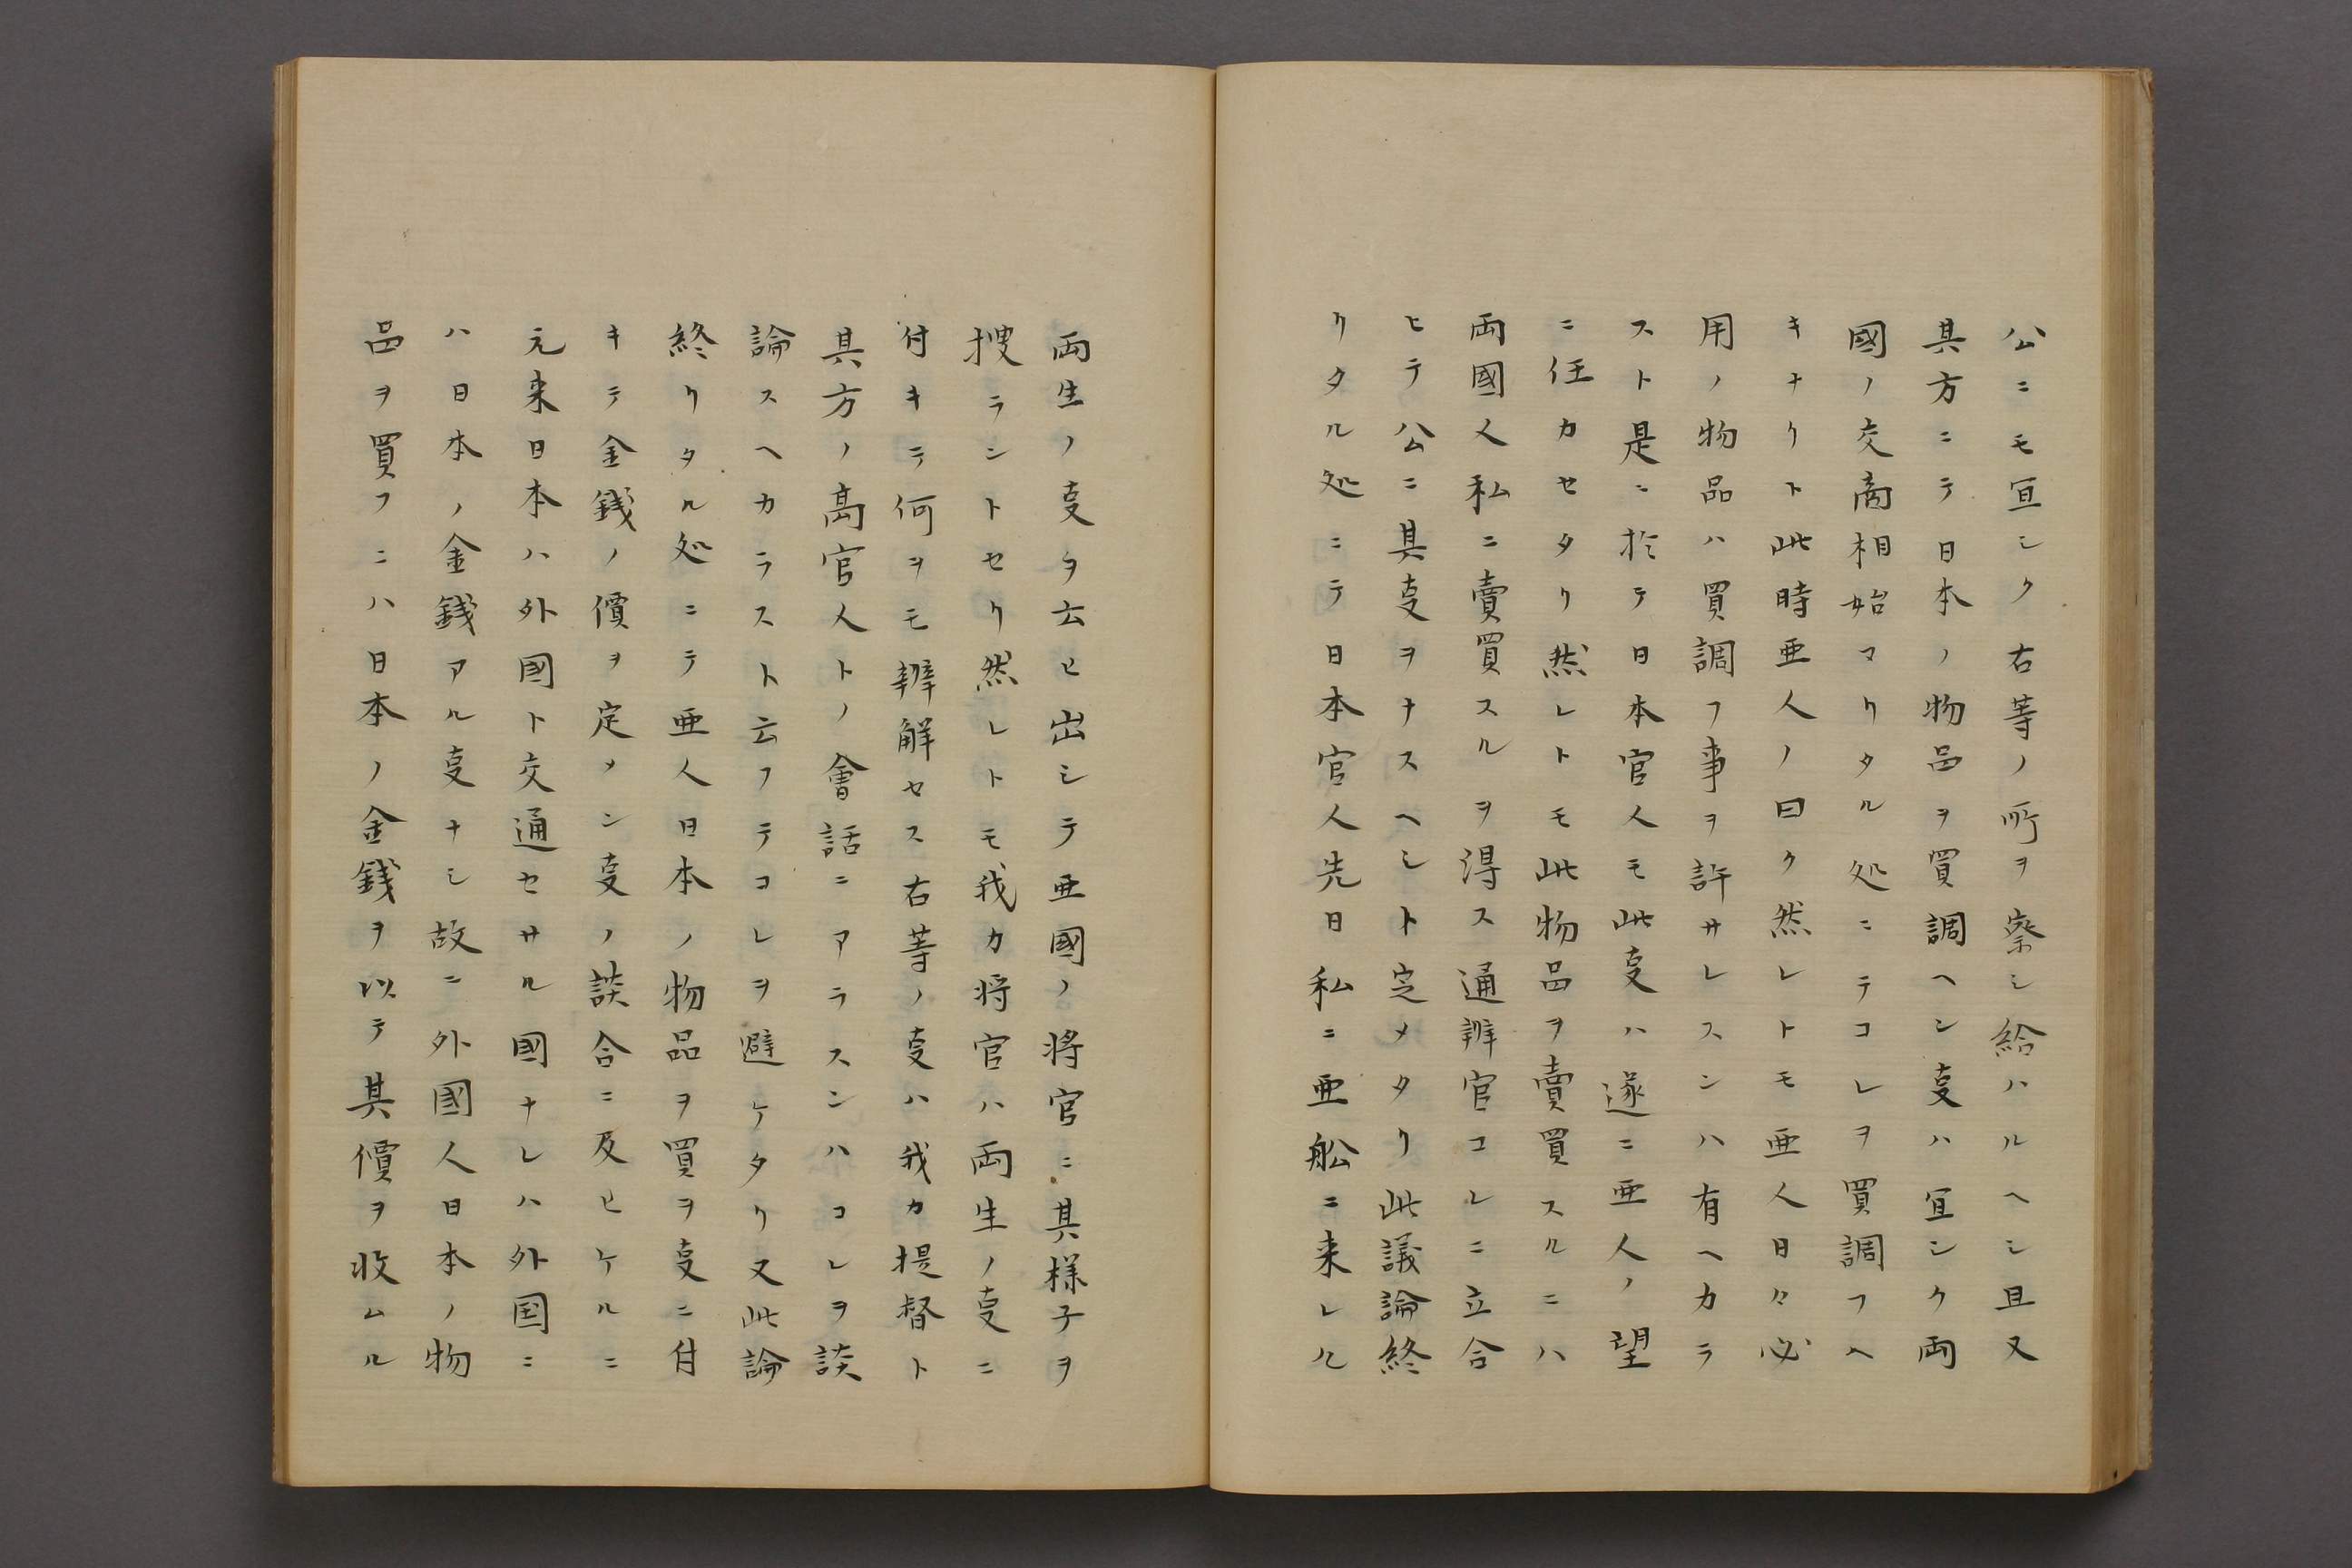 公ニモ宜シク右等ノ所ヲ察シ給ハルヘシ且又
其方ニテ日本ノ物品ヲ買調ヘン㕝ハ宜シク両
國ノ交商相始マリタル処ニテコレヲ買調フヘ
キナリト此時亜人ノ曰ク然レトモ亜人日々必
用ノ物品ハ買調フ事ヲ許サレスンハ有ヘカラ
スト是ニ於テ日本官人モ此㕝ハ遂ニ亜人ノ望
ニ任カセタリ然レトモ此物品ヲ賣買スルニハ
両國人私ニ賣買スルヲ得ス通辨官コレニ立合
ヒテ公ニ其㕝ヲナスヘシト定メタリ此議論終
リタル処ニテ日本官人先日私ニ亜舩ニ来レル
両生ノ㕝ヲ云ヒ出シテ亜國ノ将官ニ其様子ヲ
捜ラントセリ然レトモ我カ将官ハ両生ノ㕝ニ
付キテ何ヲモ辨解セス右等ノ㕝ハ我カ提督ト
其方ノ高官人トノ會話ニアラスンハコレヲ談
論スヘカラスト云フテコレヲ避ケタリ又此論
終リタル処ニテ亜人日本ノ物品ヲ買ヲ㕝ニ付
キテ金錢ノ價ヲ定メン㕝ノ談合ニ及ヒケルニ
元来日本ハ外國ト交通セサル國ナレハ外国ニ
ハ日本ノ金錢アル㕝ナシ故ニ外國人日本ノ物
品ヲ買フニハ日本ノ金錢ヲ以テ其價ヲ收ムル